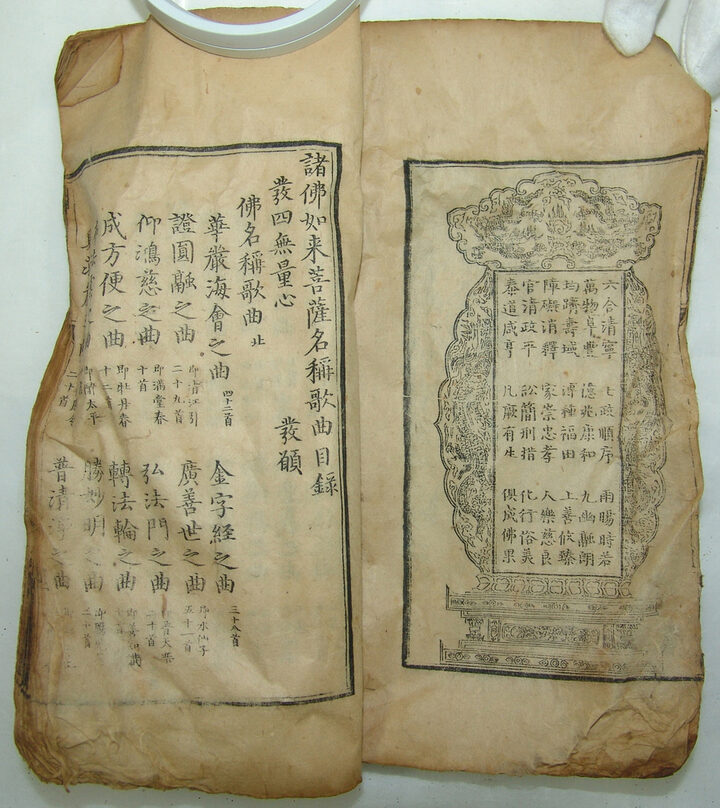 六合清寧 七政順序 雨暘時若
萬物阜豐 億兆康和 九幽融朗
均躋壽域 溥種福田 上善攸臻
障礙消釋 家崇忠孝 人樂慈良
官清政平 訟簡刑措 化行俗美
泰道咸亨 凡厥有生 俱成佛果
諸佛如来菩薩名稱歌曲目錄
發四無量心 發願
佛名稱歌曲 止
華嚴海會之曲 四十二首 金字經之曲 三十八首
證圓融之曲 即清江引 二十九首 廣善世之曲 即水仙子 五十一首
仰鴻慈之曲 即滿堂春 十首 弘法門之曲 即普天樂 二十首
成方便之曲 即牡丹春 十二首 轉法輪之曲
之曲 太平 勝妙明之曲 二十首
普清淨之曲